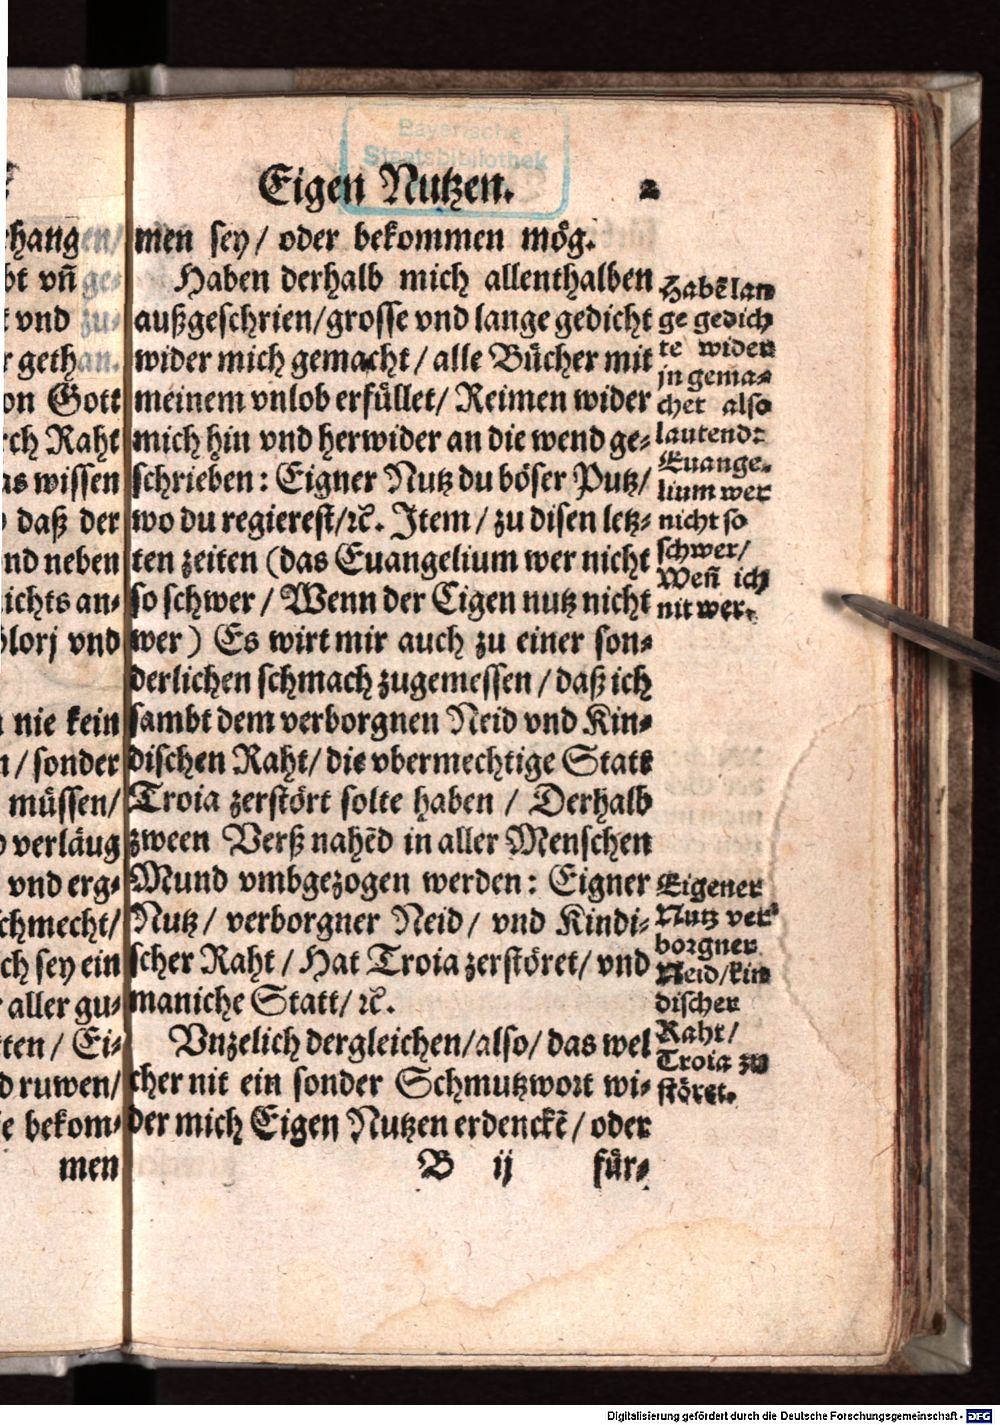 hangen/
bt vñ ge-
t vnd zu-
r gethan.
on Gott
rch Raht
as wissen
daß der
nd neben
ichts an-
lorj vnd
nie kein
n/ sonder
müssen/
verläug
vnd erg-
schmecht/
ch sey ein
r aller gu-
ten/ Ei-
d ruwen/
e bekom-
men
Bayerische
Staatsbibliothek
Eigen Nutzen. 2
men sey/ oder bekommen mög.
Haben derhalb mich allenthalben
außgeschrien/ grosse vnd lange gedicht
wider mich gemacht/ alle Bücher mit
meinem vnlob erfüllet/ Reimen wider
mich hin vnd herwider an die wend ge-
schrieben: Eigner Nutz du böser Putz/
wo du regierest/ꝛc. Item/ zu disen letz-
ten zeiten (das Euangelium wer nicht
so schwer/ Wenn der Eigen nutz nicht
wer) Es wirt mir auch zu einer son-
derlichen schmach zugemessen/ daß ich
sambt dem verborgnen Neid vnd Kin-
dischen Raht/ die vbermechtige Statt
Troia zerstört solte haben/ Derhalb
zween Verß nahẽd in aller Menschen
Mund vmbgezogen werden: Eigner
Nutz/ verborgner Neid/ vnd Kindi-
scher Raht/ Hat Troia zerstöret/ vnd
maniche Statt/ ꝛc.
Vnzelich dergleichen/ also/ das wel
cher nit ein sonder Schmutzwort wi-
der mich Eigen Nutzen erdenckẽ/ oder
B ij für-
Habẽ lan
ge gedich
te wider
jn gema-
chet also
lautend:
Euange-
lium wer
nicht so
schwer/
Weñ ich
nit wer.
Eigener
Nutz ver
borgner
Neid/ kin
discher
Raht/
Troia zu
störet.
Digitalisierung gefördert durch die Deutsche Forschungsgemeinschaft - DFG